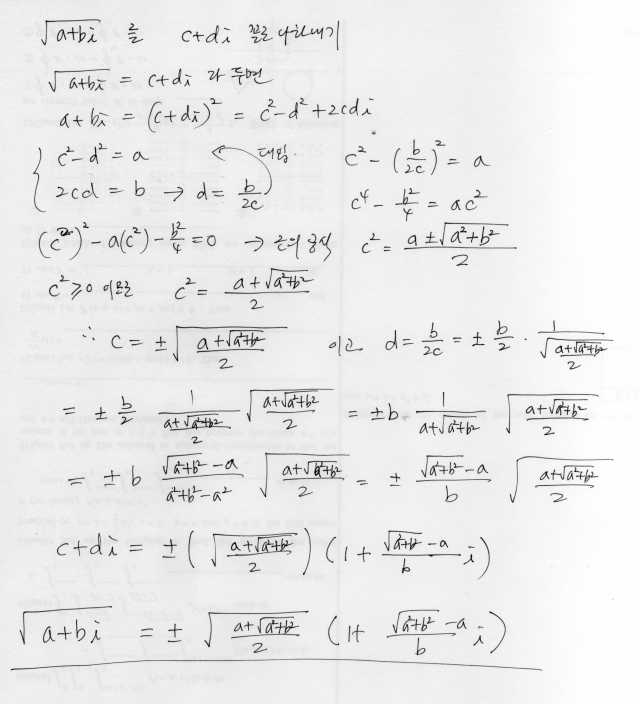 √(a+bi) 를 c+di 꼴로 나타내기
√(a+bi) = c+di 라 두면
a+bi = (c+di)² = c²-d²+2cdi
{ c²-d² = a 대입. c² - (b/2c)² = a
2cd = b → d = b/2c c⁴ - b²/4 = ac²
(c²)² - a(c²) - b²/4 = 0 → 근의 공식 c² = (a±√(a²+b²))/2
c² ≥ 0 이므로 c² = (a+√(a²+b²))/2
∴ c = ±√((a+√(a²+b²))/2) 이고 d = b/2c = ± b/2 · 1/√((a+√(a²+b²))/2)
= ± b/2 1/((a+√(a²+b²))/2) √((a+√(a²+b²))/2) = ±b 1/(a+√(a²+b²)) √((a+√(a²+b²))/2)
= ± b (√(a²+b²)-a)/(a²+b²-a²) √((a+√(a²+b²))/2) = ± (√(a²+b²)-a)/b √((a+√(a²+b²))/2)
c+di = ±(√((a+√(a²+b²))/2)) (1+ (√(a²+b²)-a)/b i)
√(a+bi) = ± √((a+√(a²+b²))/2) (1+ (√(a²+b²)-a)/b i)